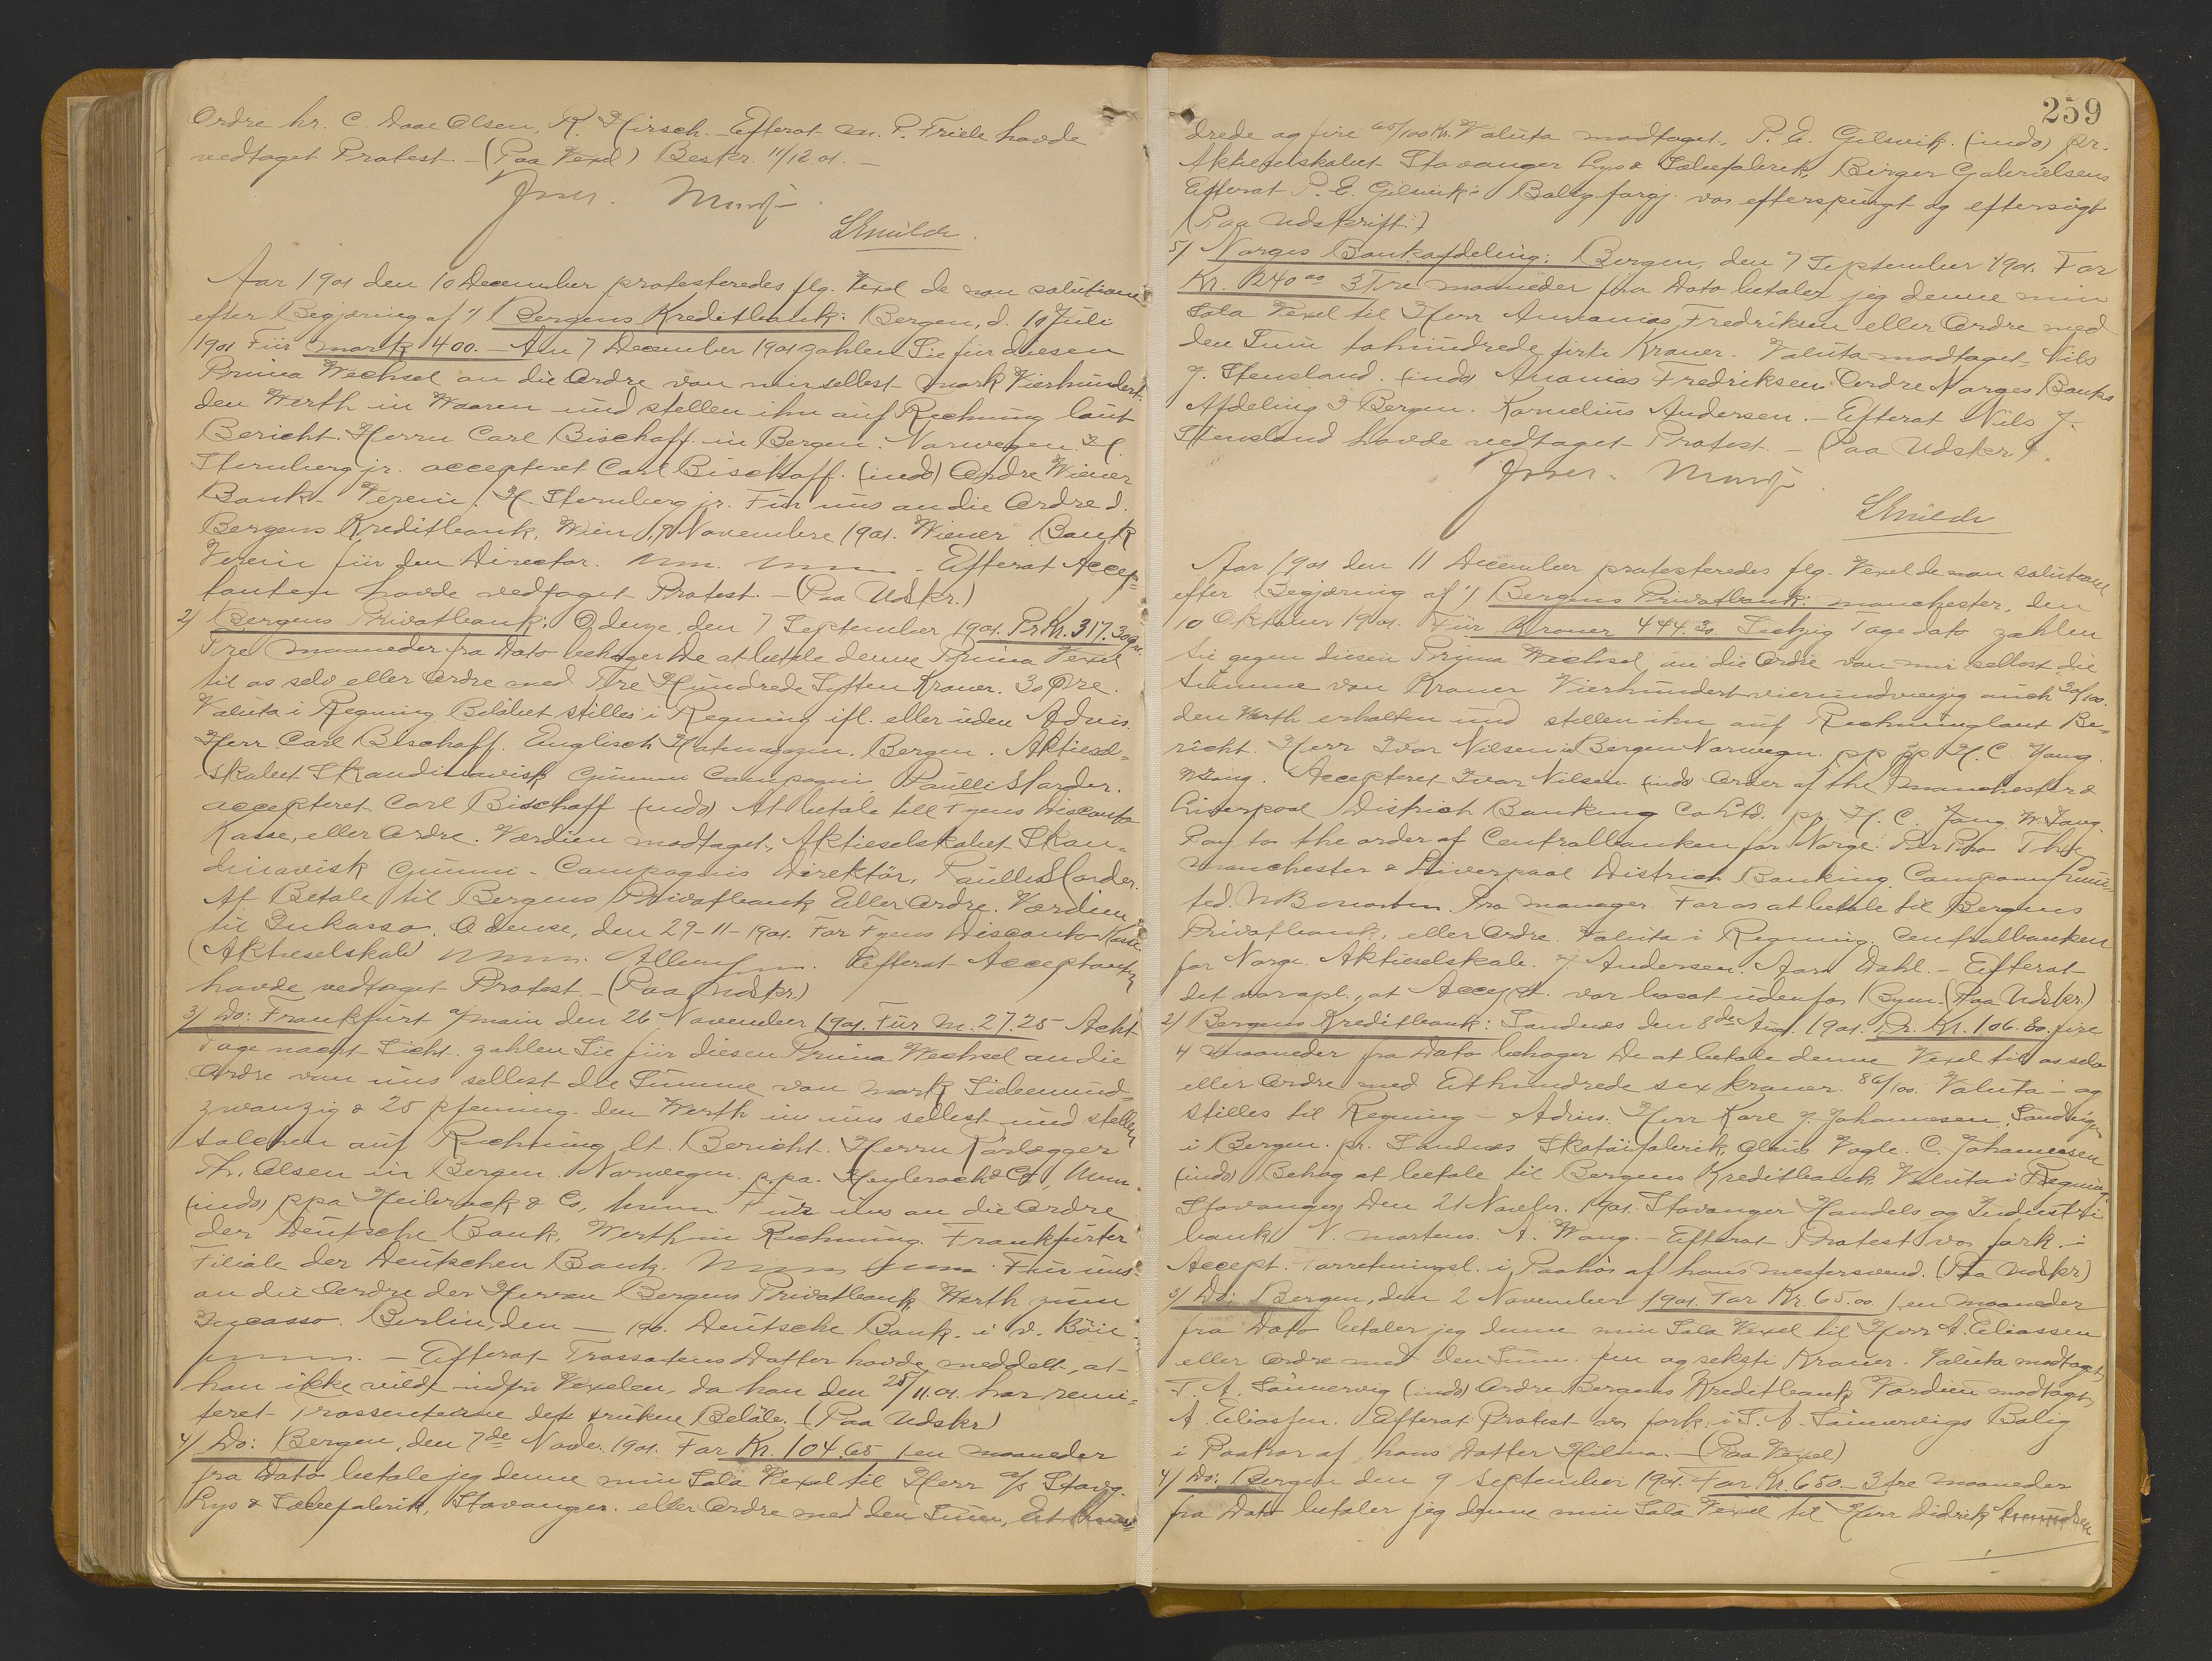 Ordre hr. C. Daae Olsen, R. Hirsch. Efterat m. P. Friele havde
vedtaget Protest. - (Paa Vexel) Beskr. 11/12 01. -
Aar 1901 den 10 December protesteredes flg. Vexel de non solutione
efter Begjæring af 1/ Bergens Kreditbank: Bergen, d. 10 Juli
1901 Für mark 400. - Am 7 December 1901 zahlen Sie für diesen
Prima Wechsel an die Ordre von mir selbst mark Vierhundert.
den Werth in Waaren und stellen ihn auf Rechnung laut
Bericht. Herrn Carl Bischoff in Bergen. Norwegen. H.
Sternberg jr. accepteret Carl Bischoff. (indo) Ordre Wiener
Bank-Verein. H. Sternberg jr. Für uns an die Ordre d.
Bergens Kreditbank, Wien 19 Novembre 1901. Wiener Bank
Verein für den Director. - Efterat Accep-
tanten havde vedtaget Protest. - (Paa Udskr.)
2/ Bergens Privatbank: Odense, den 7 September 1901. Pr. Kr. 317.30 Øre.
Tre maaneder fra Dato behager De at betale denne Prima Vexel
til os selv eller Ordre med Tre Hundrede Sytten Kroner. 30 Øre.
Valuta i Regning Beløbet stilles i Regning ifl. eller uden Advis.
Herr Carl Bischoff. Englisch Hatmagazin. Bergen. Aktiesel-
skabet Skandinavisk Gummi Compagni, Paulli Harder.
accepteret Carl Bischoff (indo) At betale till Fyens Disconto
Kasse, eller Ordre. Værdien modtaget, Aktieselskabet Skan-
dinavisk Gummi-Compagnis Direktør, Paulli Harder.
At Betale til Bergens Privatbank Eller Ordre. Værdien
til Inkasso. Odense, den 29-11-1901. For Fyens Disconto Kasse
(Aktieselskab) Efterat Acceptanten
havde vedtaget Protest - (Paa Udskr.)
3/ Do: Frankfurt a/main den 26 November 1901. Für M. 27.25 Acht
Tage nacht Sicht. zahlen Sie für diesen Prima Wechsel an die
Ordre von uns selbst die Summe von mark Siebenund-
zwanzig & 25 pfenning. den Werth in uns selbst und stellen
solchen auf Rechnung lt. Bericht. Herrn Rørlægger
Th. Olsen in Bergen. Norwegen. p.pa. Heylbrach & Co,
(indo) ppa Heilbrack & Co, Für uns an die Ordre
der Deutsche Bank, Werth in Rechnung. Frankfurter
Filiale der Deutschen Bank. Für uns
an die Ordre der Herren Bergens Privatbank Werth zum
Incasso. Berlin, den - 190. Deutsche Bank.
- Efterat Trassatens Datter havde meddelt, at
han ikke vilde indfri Vexelen, da han den 28/11.01. har remi-
teret Trassenterne det trukne Beløb. - (Paa Udskr)
4/ Do: Bergen, den 7de Novbr. 1901. For Kr. 104.65 1 en maaneder
fra Dato betale jeg denne min Sola Vexel til Herr A/S Stavg.
Lys & Sæbefabrik, Stavanger. eller Ordre med den Sum, Et hun-
259
drede og fire 65/100 Kr. Valuta modtaget, P. E. Gilsvik. (indo) pr.
Aktieselskabet Stavanger Lys & Sæbefabrik, Birger Gabrielsens
Efterat P. E. Gilsvik's Bolig forgj. var efterspurgt og eftersøgt
(Paa Udskrift.)
5/ Norges Bankafdeling: Bergen, den 7 September 1901. For
Kr. 240.00 3 Tre maaneder fra Dato betaler jeg denne min
Sola Vexel til Herr Ananias Fredriksen eller Ordre med
den Sum tohundrede firti Kroner. Valuta modtaget. Nils
J. Stensland. (indo) Ananias Fredriksen. Ordre Norges Banks
Afdeling i Bergen. Kornelius Andersen. - Efterat Nils J.
Stensland havde vedtaget Protest. - (Paa Udskr.)
Aar 1901 den 11 December protesteredes flg. Vexel de non solutione
efter Begjæring af 1/ Bergens Privatbank: manchester, den
10 Oktober 1901. Für Kroner 444.30. Sechzig Tage dato zahlen
Sie gegen diesen Prima Wechsel, an die Ordre von mir selbst die
Summe von Kroner Vierhundertvierundvierzig auch 30/100.
den Werth erhalten und stellen ihn auf Rechnung laut Be-
richt. Herr Ivar Nilsen in Bergen Norwegen. pp pp H. C. Yang.
Accepteret Ivar Nilsen (indo) Order of the Manchester &
Liverpool District Banking Co Ltd. pp. H. C. Yang.
Pay to the order of Centralbanken for Norge. Per Pro The
Manchester & Liverpool District Banking Company Limi-
ted. Pro manager. For os at betale til Bergens
Privatbank, eller Ordre. Valuta i Regning. Centralbanken
for Norge. Aktieselskab. J. Andersen. Aars Dahl. - Efterat
det var opl., at Accept. var bosat udenfor Byen. (Paa Udskr.)
2/ Bergens Kreditbank: Sandnæs den 8de Aug. 1901. Pr. Kr. 106.80. fire
4 maaneder fra Dato behager De at betale denne Vexel til os selv
eller Ordre med Ethundrede sex kroner. 86/100. Valuta - og
stilles til Regning - Advis. Herr Karl J. Johannesen, Sandvigen
i Bergen. pr. Sandnæs Skotøifabrik, Olaus Vagle. C. Johannesen
(indo) Behag at betale til Bergens Kreditbank. Valuta i Regning.
Stavanger, Den 21 Novbr. 1901. Stavanger Handels og Industri
bank N. Mortens. A. Wang. - Efterat Protest var fork. i
Accept. Forretningsl. i Paahør af hans mestersvend. (Paa Udskr)
3/ Do: Bergen, den 2 November 1901. For Kr. 65.00 1 en maaneder
fra Dato betaler jeg denne min Sola Vexel til Herr A. Eliassen
eller Ordre med den Sum. fem og seksti Kroner. Valuta modtaget,
T. A. Sønnervig (indo) Ordre Bergens Kreditbank Værdien modtaget,
A. Eliassen. Efterat Protest var fork. i T. A. Sønnervigs Bolig
i Paahør af hans Datter Hilma. - (Paa Vexel)
4/ Do: Bergen den 9 September 1901. For Kr. 650. - 3 tre maaneder
fra Dato betaler jeg denne min Sola Vexel til Herr Didrik